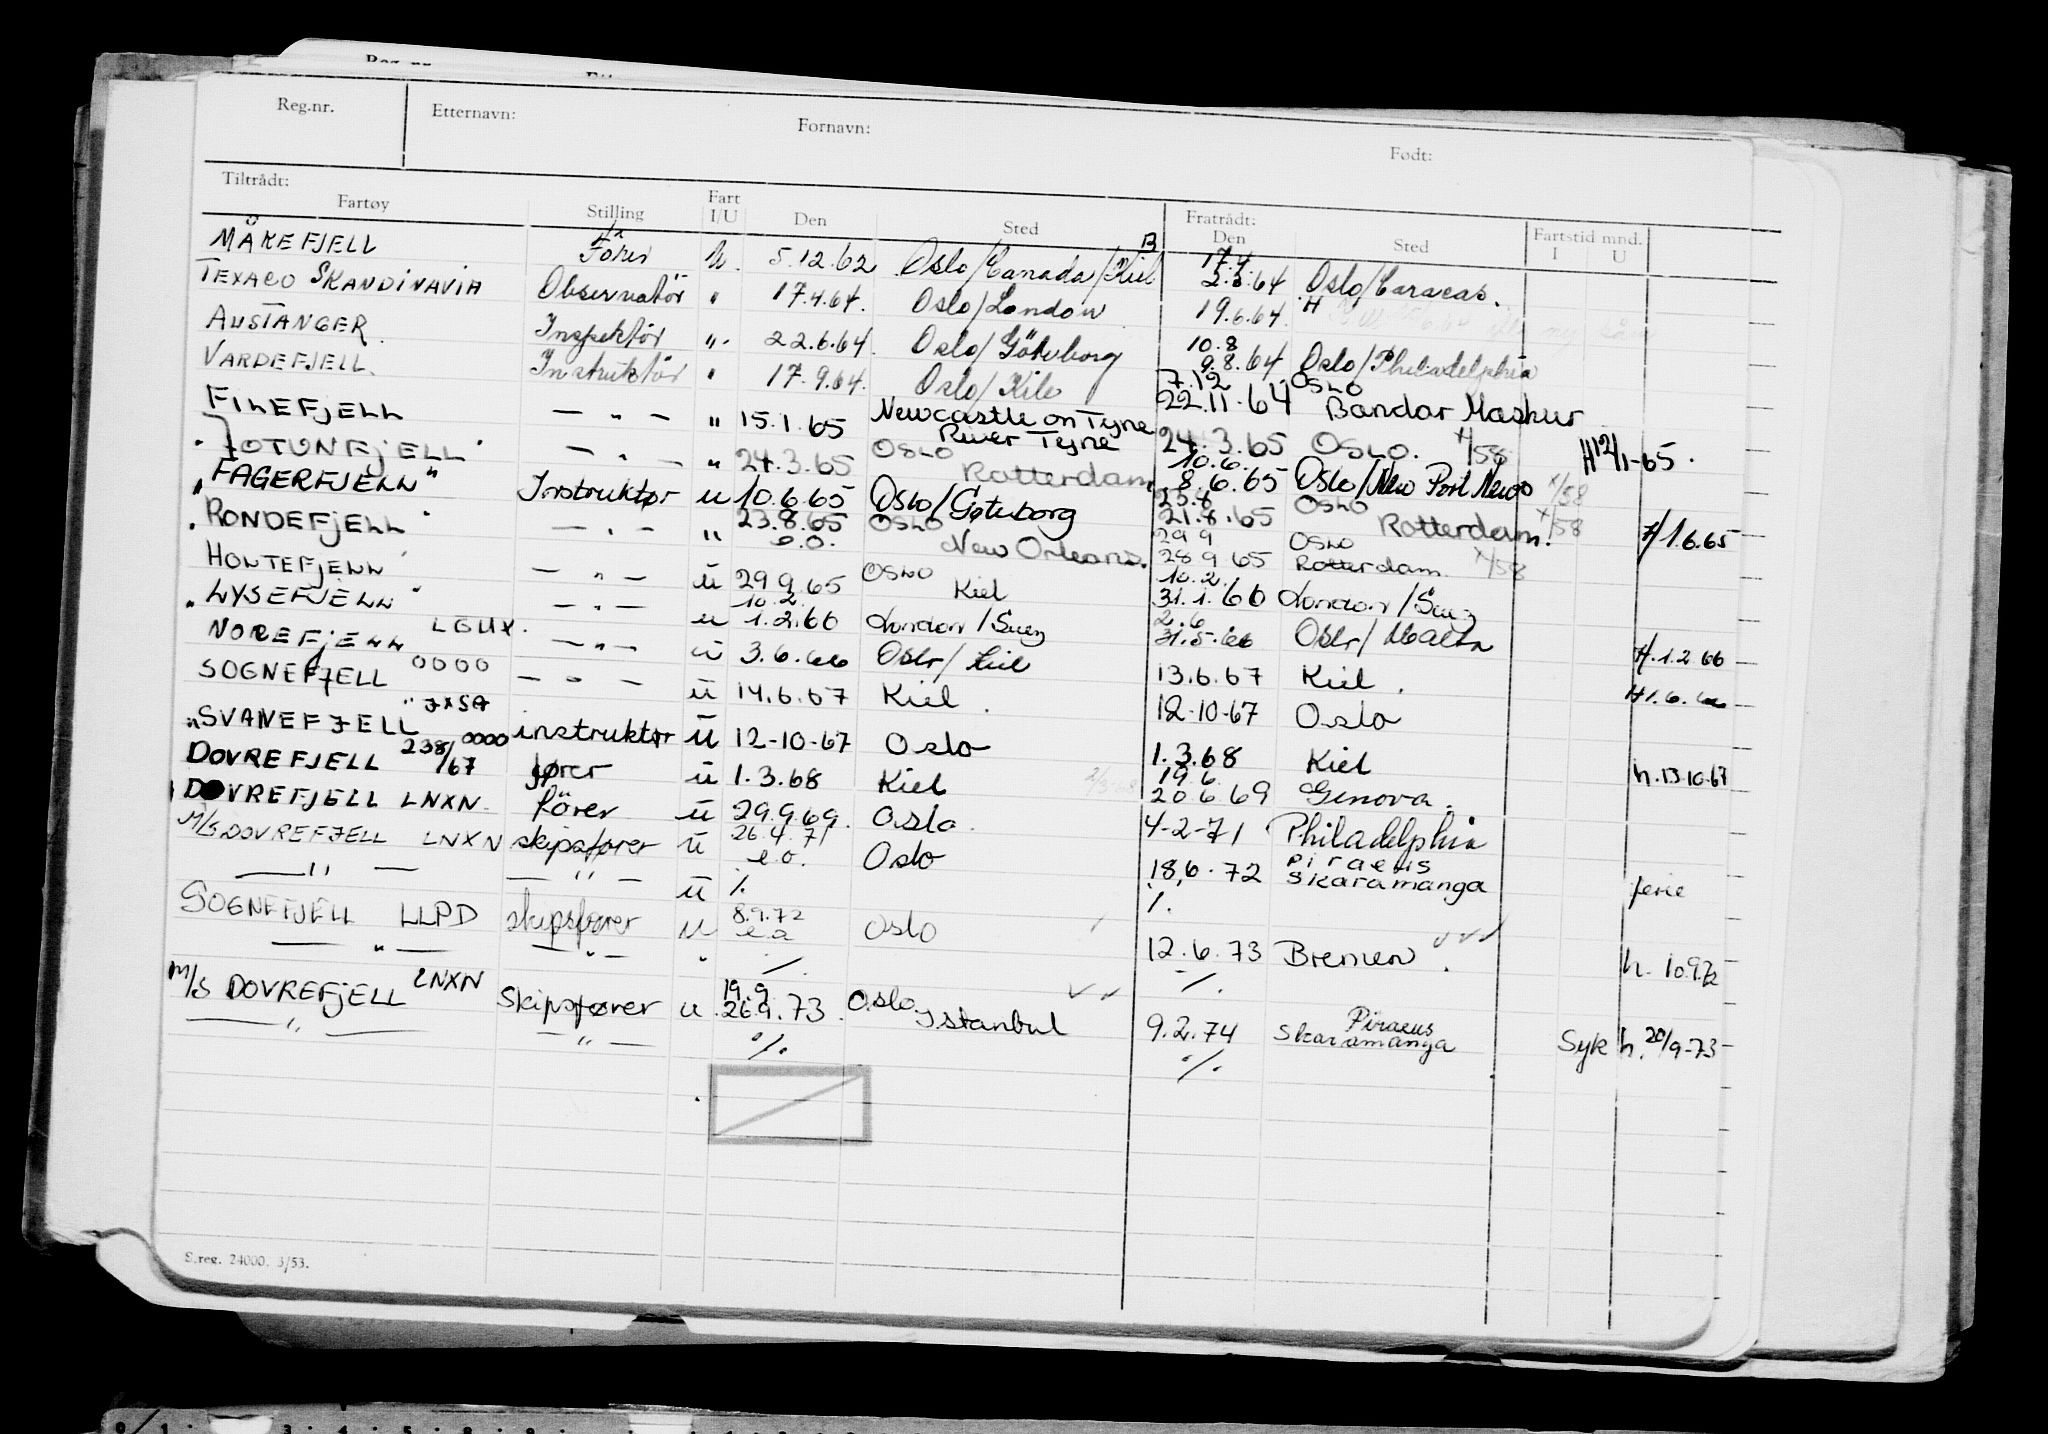 Reg.nr. Etternavn: Fornavn: Født:
Tiltrådt: Fratrådt:
Fartøy Stilling Fart I/U Den Sted Den Sted Fartstid mnd. I U
MÅKEFJELL Fører u. 5.12.62 Oslo/Canada/Kiel 17.4 2.3.64 Oslo/Caracas.
TEXACO SKANDINAVIA Observatør " 17.4.64. Oslo/London 19.6.64. H
AUSTANGER Inspektør " 22.6.64. Oslo/Göteborg 10.8 9.8.64 Oslo/Philadelphia
VARDEFJELL. Instruktör " 17.9.64. Oslo/Kile 7.12 22.11.64 OSLO Bandar Mashur
FILEFJELL — " — " 15.1.65 Newcastle on Tyne River Tyne 24.3.65 OSLO. x/58 H12/1-65.
JOTUNFJELL — " — " 24.3.65 OSLO Rotterdam 10.6. 8.6.65 Oslo/New Port News x/58
"FAGERFJELL" Instruktør u 10.6.65 Oslo/Gøteborg 23.8 21.8.65 OSLO Rotterdam. x/58 H1.6.65
"RONDEFJELL" — " — " 23.8.65 e.o. OSLO New Orleans. 29 9 28 9 65 OSLO Rotterdam x/58
HOLTEFJELL — " — u 29 9 65 OSLO Kiel 10.2. 31.1.66 London/Suez
"LYSEFJELL" — " — u 10.2. 1.2.66 London/Suez 2.6 31.5.66 Oslo/Malta H.1.2 66
NOREFJELL LGUX. — " — u 3.6.66 Oslo/Kiel 13.6.67 Kiel. H1.6.66
SOGNEFJELL 0000 — " — u 14.6.67 Kiel. 12-10-67 Oslo
"SVANEFJELL" JXSA instruktør u 12-10-67 Oslo 1.3.68 Kiel h.13.10.67
DOVREFJELL 238/67 0000 fører u 1.3.68 Kiel 19.6. 20.6.69 Genova.
DOVREFJELL LNXN förer u 29.9.69. Oslo 4-2-71 Philadelphia
M/S DOVREFJELL LNXN skipsfører u 26.4.71 e.o. Oslo 18.6.72 Piraeus Skaramanga ferie
— " — — " — u %. %.
SOGNEFJELL LLPD skipsfører u 8.9.72 e.o. Oslo 12.6.73 Bremen. h. 10.9.72
— " — — " — " %. %.
M/S DOVREFJELL LNXN Skipsfører u 19.9 26.9.73 Oslo Istanbul 9.2.74 Piraeus Skaramanga Syk h. 20/9-73
— " — — " — %. %.
S.reg. 24000. 3/53.